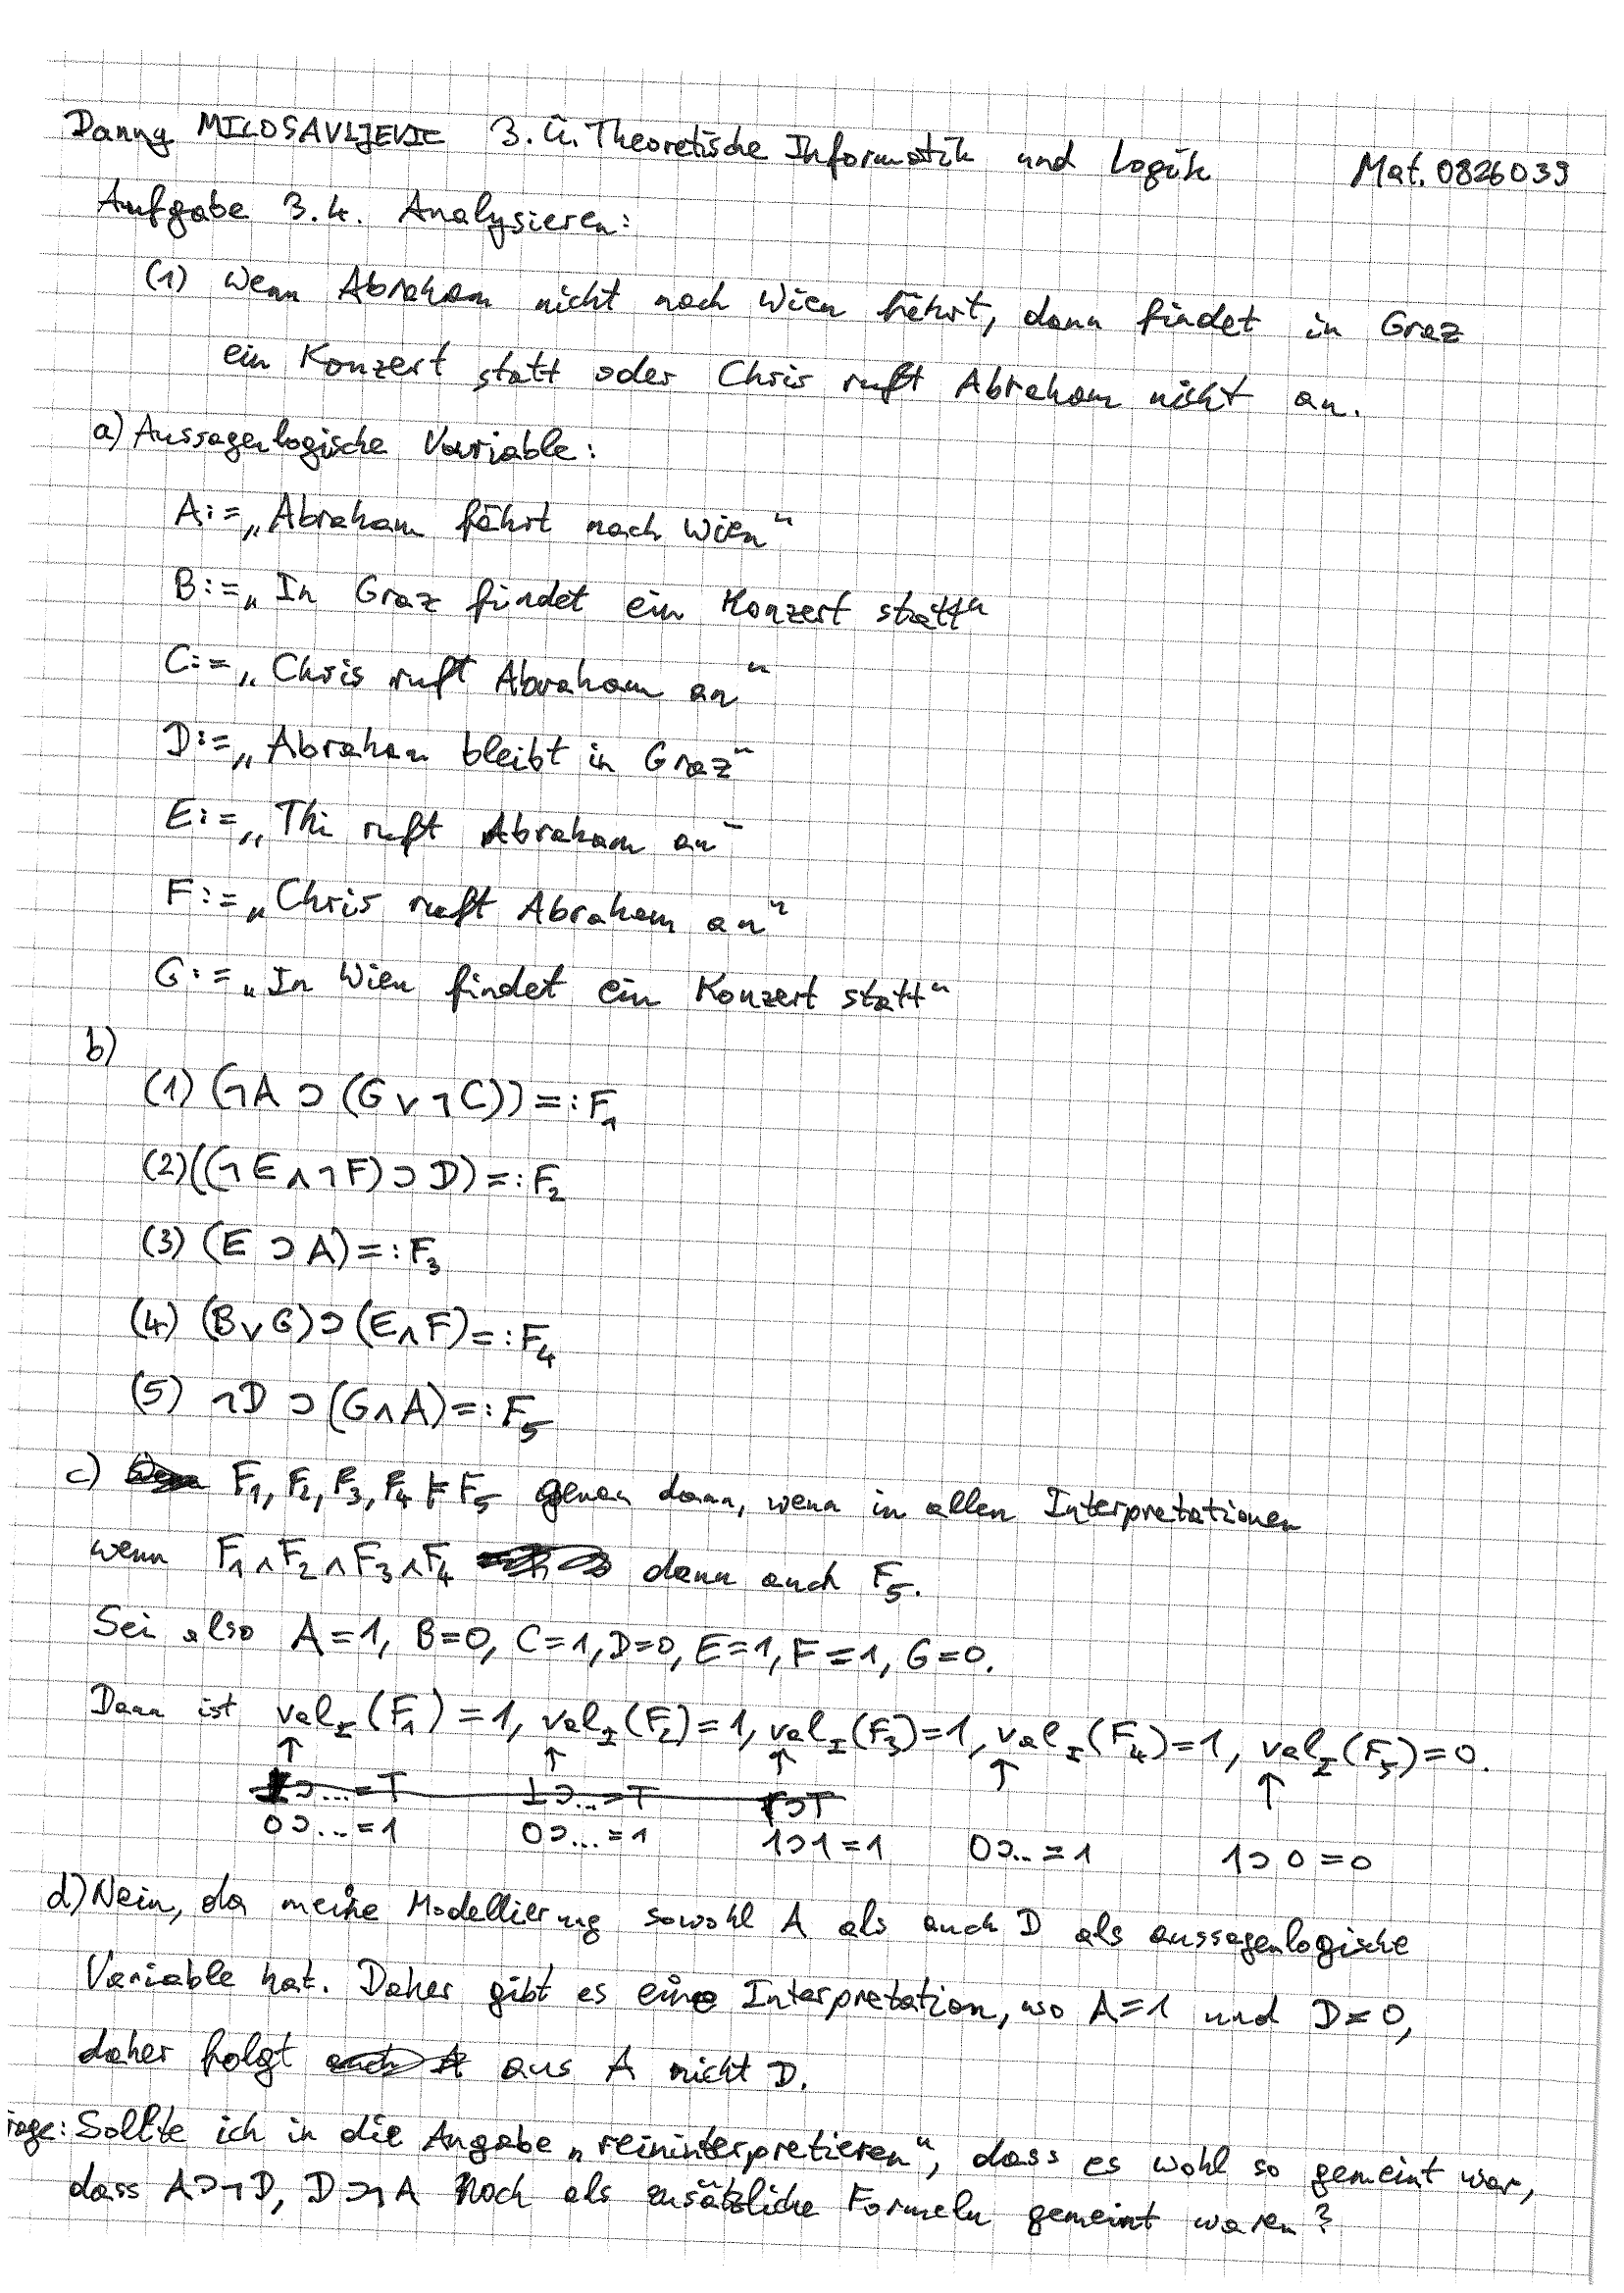 Danny MILOSAVLJEVIC 3. Ü. Theoretische Informatik und Logik Mat. 0826039
Aufgabe 3.4. Analysieren:
(1) Wenn Abraham nicht nach Wien fährt, dann findet in Graz
ein Konzert statt oder Chris ruft Abraham nicht an.
a) Aussagenlogische Variable:
A:=„Abraham fährt nach Wien“
B:=„In Graz findet ein Konzert statt“
C:=„Chris ruft Abraham an“
D:=„Abraham bleibt in Graz“
E:=„Thi ruft Abraham an“
F:=„Chris ruft Abraham an“
G:=„In Wien findet ein Konzert statt“
b)
(1) (¬A ⊃ (G ∨ ¬C)) =: F₁
(2) ((¬E ∧ ¬F) ⊃ D) =: F₂
(3) (E ⊃ A) =: F₃
(4) (B ∨ G) ⊃ (E ∧ F) =: F₄
(5) ¬D ⊃ (G ∧ A) =: F₅
c) F₁, F₂, F₃, F₄ ⊨ F₅ genau dann, wenn in allen Interpretationen
wenn F₁ ∧ F₂ ∧ F₃ ∧ F₄ dann auch F₅.
Sei also A=1, B=0, C=1, D=0, E=1, F=1, G=0.
Dann ist val_I(F₁)=1, val_I(F₂)=1, val_I(F₃)=1, val_I(F₄)=1, val_I(F₅)=0.
↑ ↑ ↑ ↑ ↑
⊥⊃...=T ⊥⊃...=T T⊃T
0⊃...=1 0⊃...=1 1⊃1=1 0⊃..=1 1⊃0=0
d) Nein, da meine Modellierung sowohl A als auch D als aussagenlogische
Variable hat. Daher gibt es eine Interpretation, wo A=1 und D=0,
daher folgt aus A nicht D.
rage: Sollte ich in die Angabe „reininterpretieren“, dass es wohl so gemeint war,
dass A⊃¬D, D⊃¬A noch als zusätzliche Formeln gemeint waren?